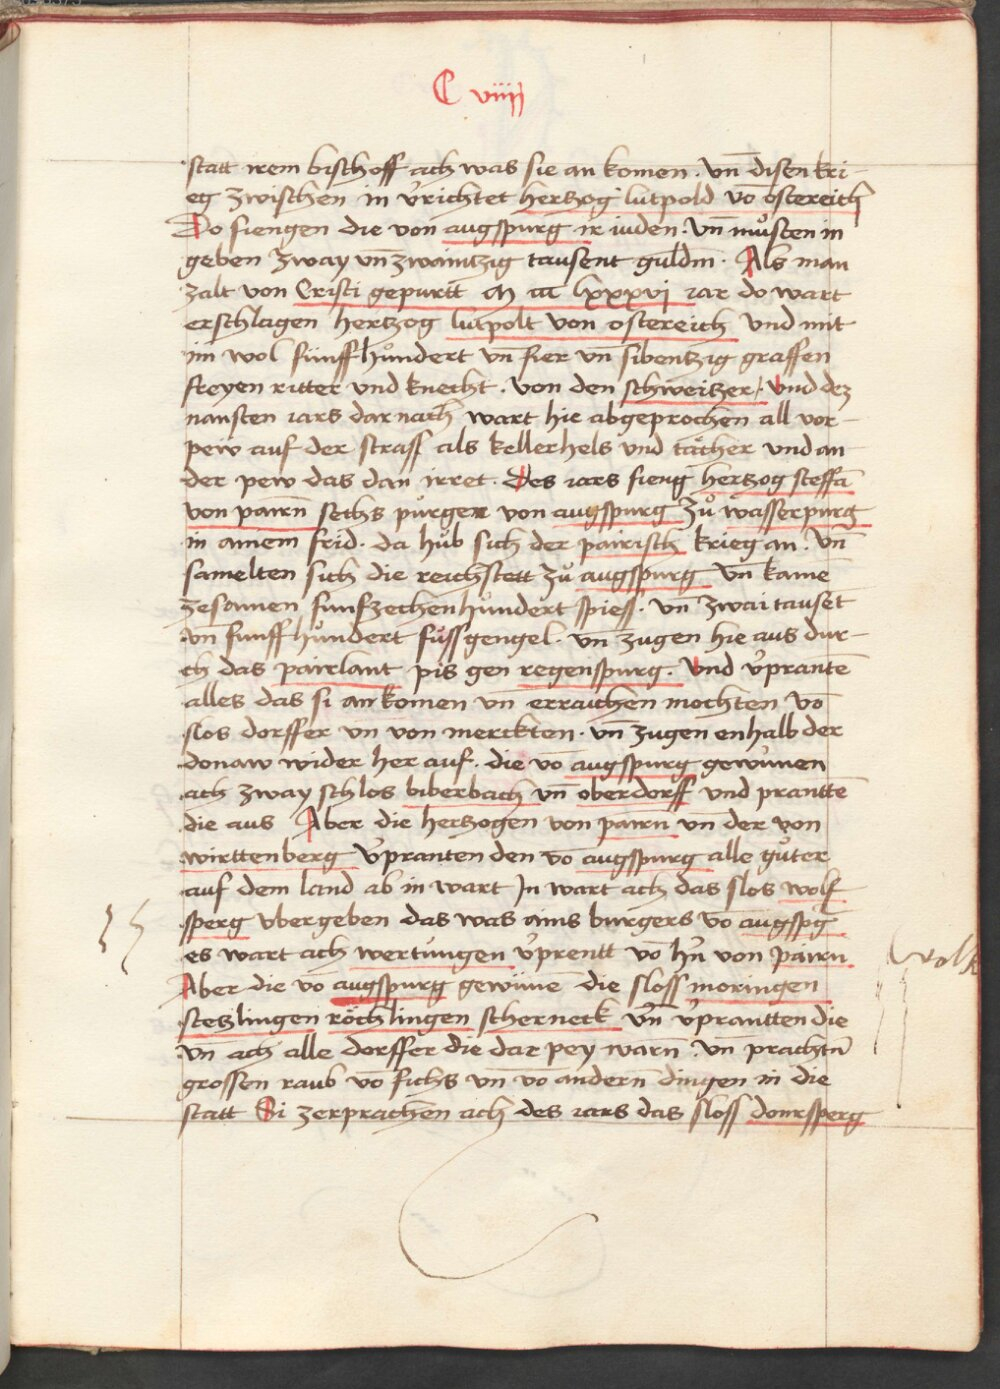 C viiij
statt irem bischoff ach was sie an komen · vn̄ disen kri-
eg zwischen in v̓richtet hertzog lutpold vō ostereich
Do fiengen die von augspurg ir iuden · vn̄ můsten in
geben zway vn̄ zwaintzig tausent guldin · Als man
zalt von Cristi gepurtt M ccc lxxxvj iar do wart
erschlagen hertzog lutpolt von ostereich und mit
im wol fünffhůndert vn̄ fier vn̄ sibentzig graffen
freyen ritter und knecht · von den schweitzer · Und dez
nansten iars dar nach wart hie abgeprochen all vor-
pew auf der strass als kellerhels und tächer und an
der pew das dan irret · Des iars fieng hertzog steffā
von pairn̄ sechs půrger von augspurg zů wasserpurg
in ainem frid · da hůb sich der pairisch krieg an · Vn̄
samelten sich die reichstett zů augspurg Vn̄ kamē
zesamen funfzechenhůndert spiess · vn̄ zwai tausēt
vn̄ funffhůndert fůssgengel · vn̄ zugen hie aus dur-
ch das pairlant pis gen regenspurg · Und v̓prantē
alles das si an komen vn̄ erraichen mochten vō
slos dorffer vn̄ von merckten · vn̄ zugen enhalb der
donaw wider her auf · die vō augspurg gewunen
ach zway schlos biberbach vn̄ oberdorff und prantē
die aus Aber die hertzogen von pairn vn̄ der von
wirttenberg v̓pranten den vō augspurg alle gůter
auf dem land ab in wart In wart ach das slos wolf
sperg vbergeben das was ains burgers vō augspg̓
es wart ach wertungen v̓prentt vō hn̓ von pairn
Aber die vō augspurg gewūnē die sloss moringen
stetzlingen röchlingen scherneck vn̄ v̓prantten die
Vn̄ ach alle dorffer die dar pey warn̄ · vn̄ prachtn̄
grossen raub vō fichs vn̄ vō andern̄ dingen in die
statt Si zerprachen ach des iars das sloss donrsperg